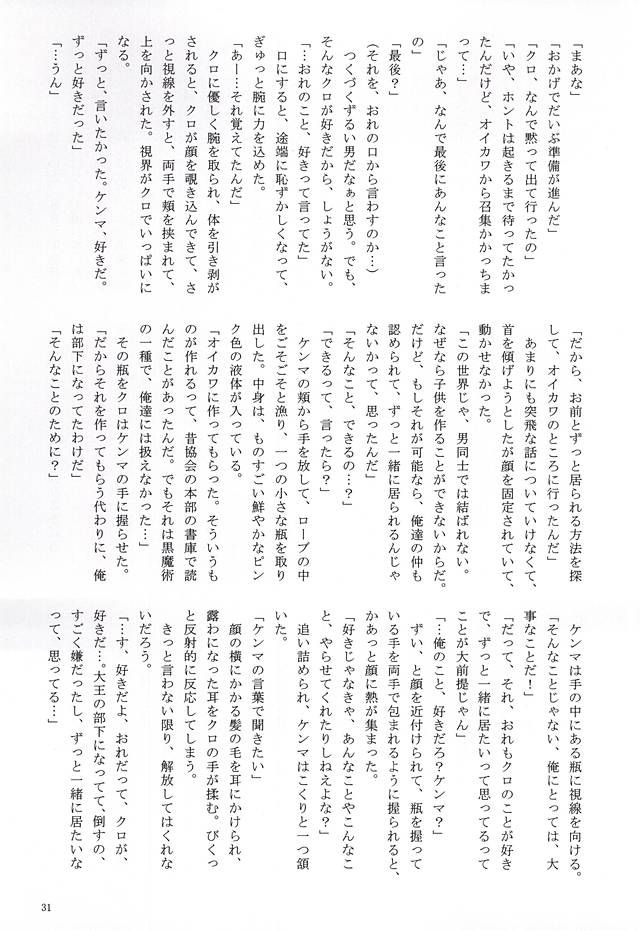 「まあな」
「おかげでだいぶ準備が進んだ」
「クロ、なんで黙って出て行ったの」
「いや、ホントは起きるまで待ってたかっ
たんだけど、オイカワから召集かかっちま
って…」
「じゃあ、なんで最後にあんなこと言った
の」
「最後？」
(それを、おれの口から言わすのか…)
つくづくずるい男だなぁと思う。でも、
そんなクロが好きだから、しょうがない。
「…おれのこと、好きって言ってた」
口にすると、途端に恥ずかしくなって、
ぎゅっと腕に力を込めた。
「あー…それ覚えてたんだ」
クロに優しく腕を取られ、体を引き剥が
されると、クロが顔を覗き込んできて、さ
っと視線を外すと、両手で頬を挟まれて、
上を向かされた。視界がクロでいっぱいに
なる。
「ずっと、言いたかった。ケンマ、好きだ。
ずっと好きだった」
「…うん」
「だから、お前とずっと居られる方法を探
して、オイカワのところに行ったんだ」
あまりにも突飛な話についていけなくて、
首を傾げようとしたが顔を固定されていて、
動かせなかった。
「この世界じゃ、男同士では結ばれない。
なぜなら子供を作ることができないからだ。
だけど、もしそれが可能なら、俺達の仲も
認められて、ずっと一緒に居られるんじゃ
ないかって、思ったんだ」
「そんなこと、できるの…？」
「できるって、言ったら？」
ケンマの頬から手を放して、ローブの中
をごそごそと漁り、一つの小さな瓶を取り
出した。中身は、ものすごい鮮やかなピン
ク色の液体が入っている。
「オイカワに作ってもらった。そういうも
のが作れるって、昔協会の本部の書庫で読
んだことがあったんだ。でもそれは黒魔術
の一種で、俺達には扱えなかった…」
その瓶をクロはケンマの手に握らせた。
「だからそれを作ってもらう代わりに、俺
は部下になってたわけだ」
「そんなことのために？」
ケンマは手の中にある瓶に視線を向ける。
「そんなことじゃない、俺にとっては、大
事なことだ！」
「だって、それ、おれもクロのことが好き
で、ずっと一緒に居たいって思ってるって
ことが大前提じゃん」
「…俺のこと、好きだろ？ケンマ？」
ずい、と顔を近付けられて、瓶を握って
いる手を両手で包まれるように握られると、
かあっと顔に熱が集まった。
「好きじゃなきゃ、あんなことやこんなこ
と、やらせてくれたりしねえよな？」
追い詰められ、ケンマはこくりと一つ頷
いた。
「ケンマの言葉で聞きたい」
顔の横にかかる髪の毛を耳にかけられ、
露わになった耳をクロの手が揉む。びくっ
と反射的に反応してしまう。
きっと言わない限り、解放してはくれな
いだろう。
「…す、好きだよ、おれだって、クロが、
好きだ…。大王の部下になってて、倒すの、
すごく嫌だったし、ずっと一緒に居たいな
って、思ってる…」
31